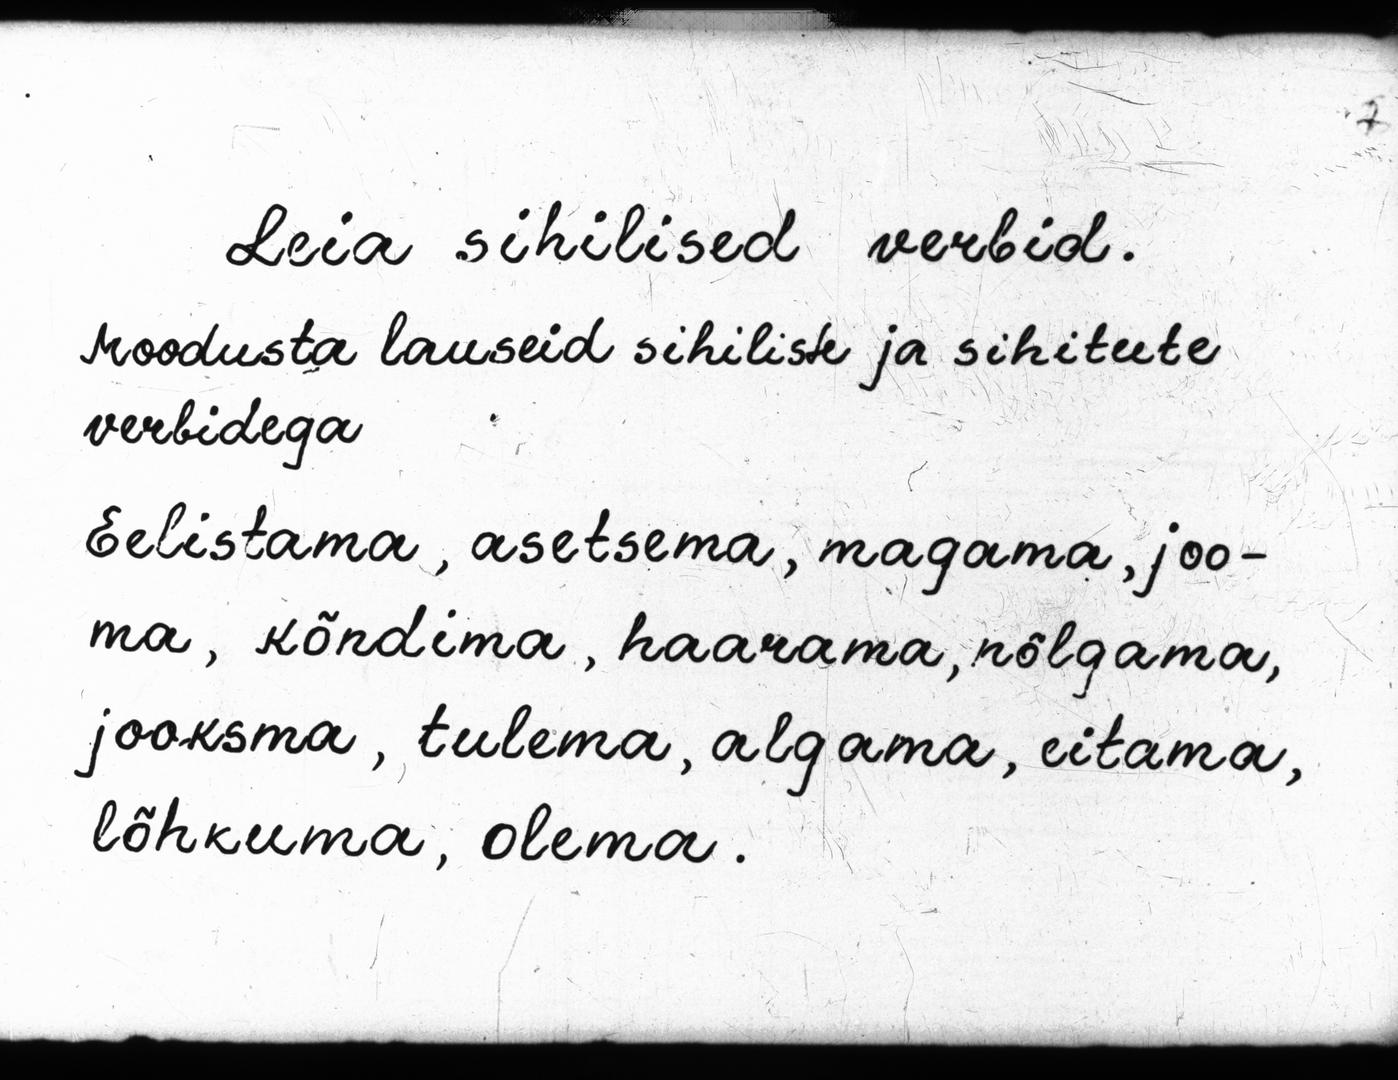 7
Leia sihilised verbid.
Moodusta lauseid sihiliste ja sihitute
verbidega
Eelistama, asetsema, magama, joo-
ma, kõndima, haarama, nõlgama,
jooksma, tulema, algama, eitama,
lõhkuma, olema.